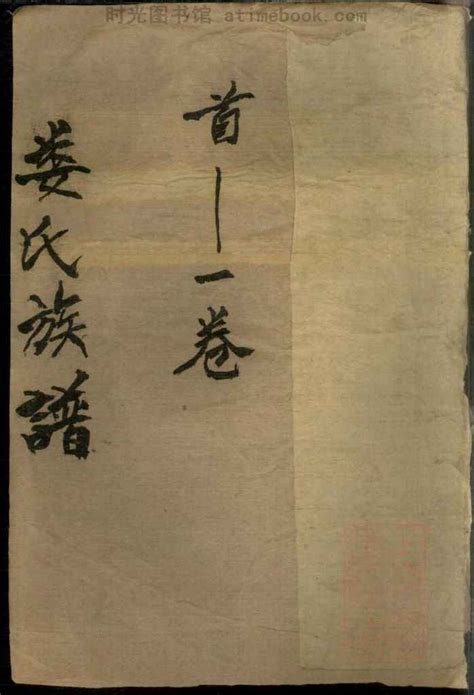 时光图书馆 atimebook.com
首｜一卷
娄氏族譜